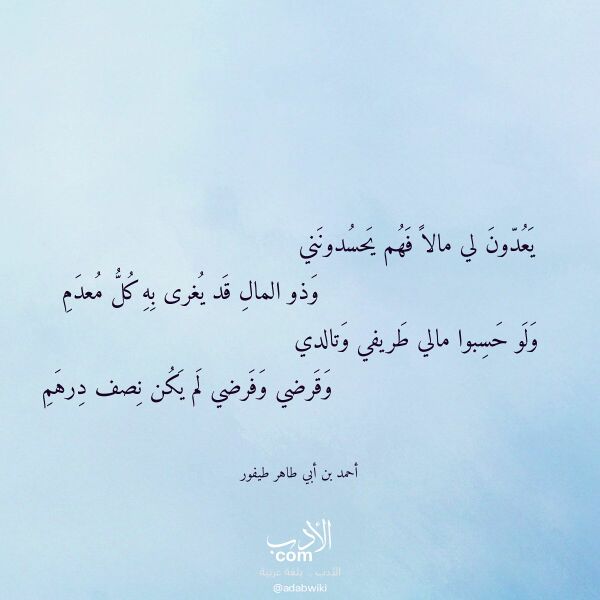 يَعُدّونَ لي مالاً فَهُم يَحسُدونَني
وَذو المالِ قَد يُغرى بِهِ كُلُّ مُعدَمِ
وَلَو حَسِبوا مالي طَريفي وَتالدي
وَقَرضي وَفَرضي لَم يَكُن نِصف دِرهَمِ
أحمد بن أبي طاهر طيفور
الأدب
com
الأدب .. بلغة عربية
@adabwiki